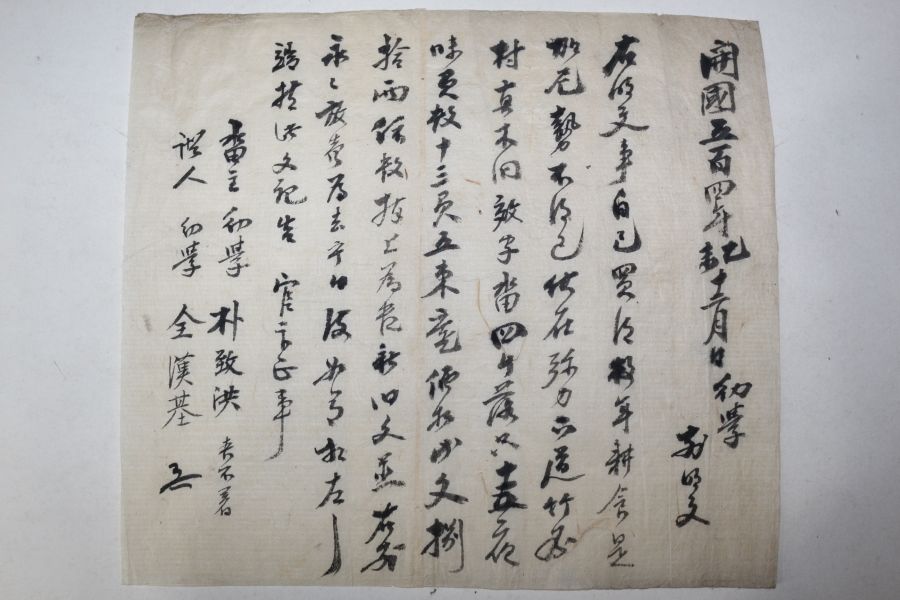 開國五百四年乙未十二月日 幼學 前明文
右明文事自己買得數年耕食是
如可勢不得已伏在弥力面道竹谷
村員木同效字畓四斗落只
味負數十三負五束庫價折錢文捌
拾兩依數捧上為遣新旧文并右前
永永放賣為去乎日後如有相左
端持此文記告 官卞正事
畓主 幼學 朴致洪 喪不着
證人 幼學 全漢基